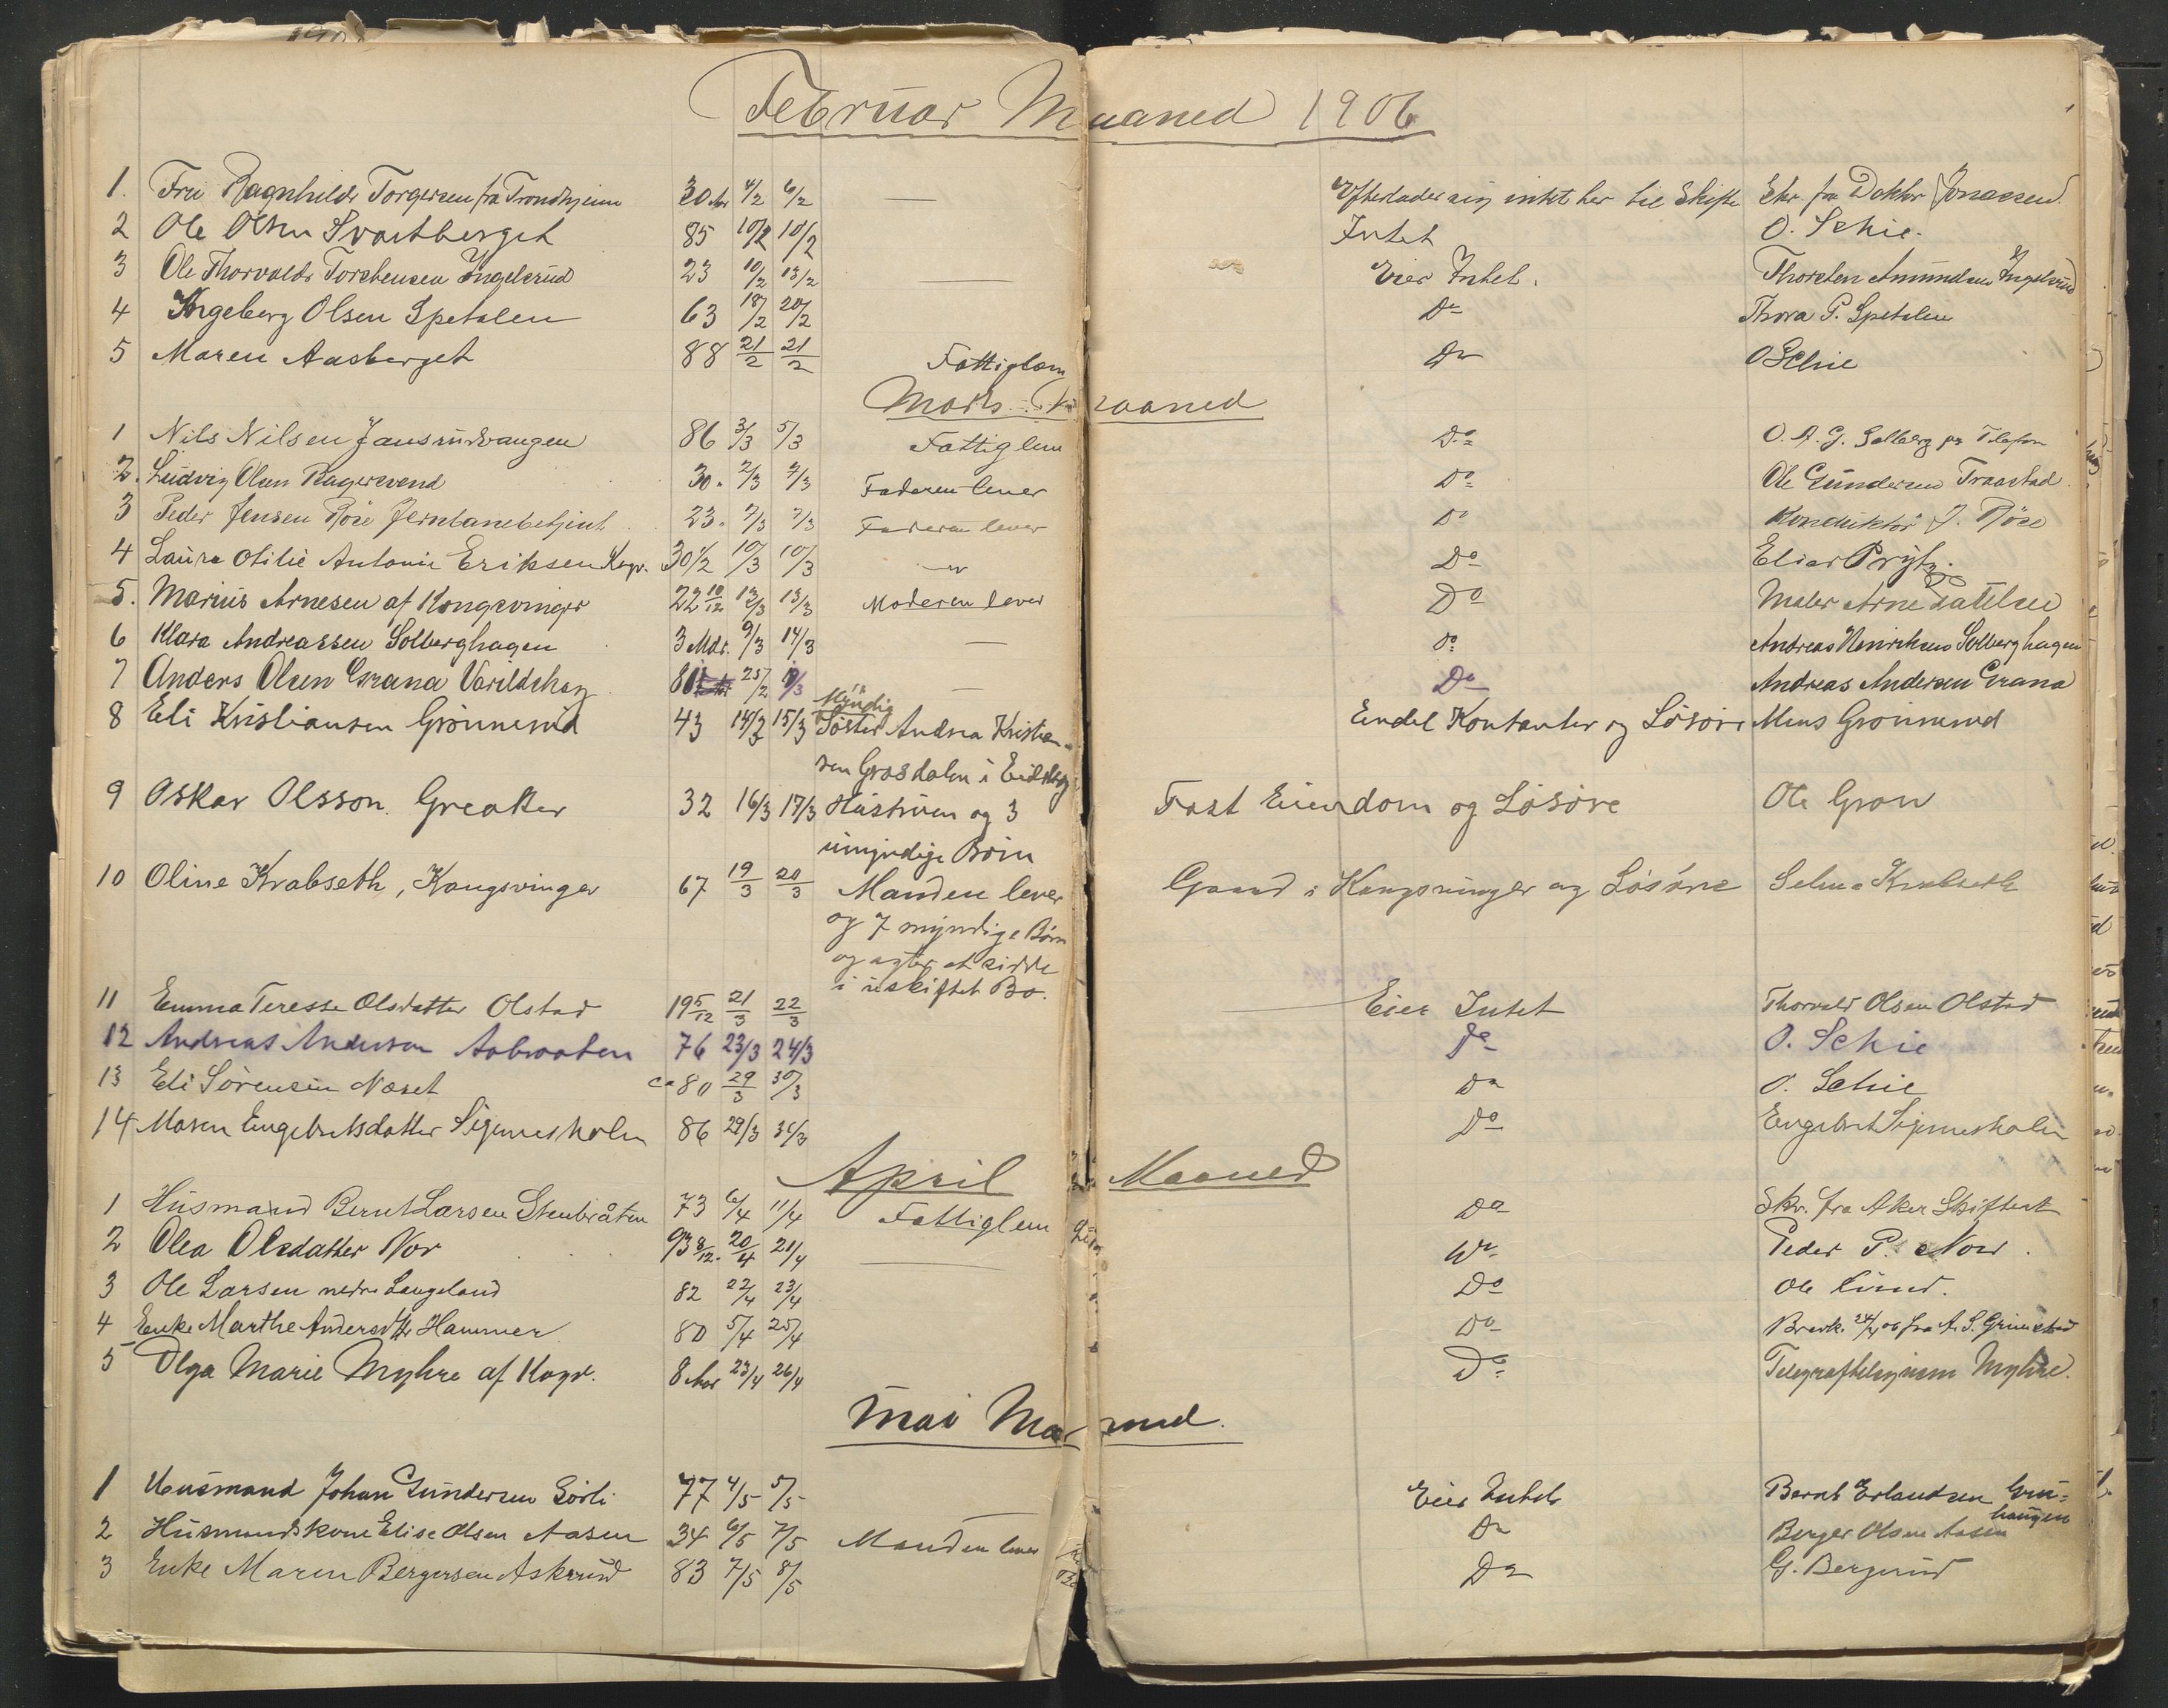 Februar Maaned 1906
1. Fru Ragnhilde Torgersen fra Trondhjem 30 Aar 4/2 6/2 — Efterlader sig intet her til Skifte Skr. fra Doktor Jonassen
2 Ole Olsen Svartberget 85 10/2 10/2 Intet O. Schie.
3 Ole Thorvalds Torstensen Ingelsrud 23 10/2 13/2 — Eier Intet. Thorsten Amundsen Ingelsrud
4 Ingeborg Olsen Spetalen 63 18/2 20/2 Do Thora P. Spetalen
5 Maren Aasberget 88 21/2 21/2 Fattiglem Do O Schie
Marts Maaned
1 Nils Nilsen Jansrudvangen 86 3/3 5/3 Fattiglem Do O. A. G. Solberg pr Telefon
2. Ludvig Olsen Ragersvend 30. 2/3 7/3 Faderen lever Do Ole Gundersen Traastad
3 Peder Jensen Röse Jernbanebetjent 23. 7/3 7/3 Faderen lever Do Konduktör J. Röse
4 Laura Otilie Antonie Eriksen Kgv. 30 1/2 10/3 10/3 — Do Elias Prytz.
5. Marius Arnesen af Kongsvinger 22 10/12 12/3 13/3 Moderen lever Do Maler Arne
6 Klara Andreassen Solberghagen 3 Mdr. 9/3 14/3 — Do Andreas Henriksen Solberghagen
7 Anders Olsen Grana Varildskog 81 25/2 — Do Andreas Andersen Grana
8 Eli Kristiansen Grönnerud 43 14/3 15/3 Myndig Söster Andrea Kristian-
sen Grasdalen i Eidskog Endel Kontanter og Lösöre Mens Grönnerud
9 Oskar Olsson Greaker 32 16/3 17/3 Hustruen og 3
umyndige Börn Fast Eiendom og Lösöre Ole Gron
10 Oline Krabseth, Kongsvinger 67 19/3 20/3 Manden lever
og 7 myndige Börn
og agter at sidde
i uskiftet Bo. Gaard i Kongsvinger og Lösöre Selma Krabseth
11 Emma Teresse Olsdatter Olstad 19 5/12 21/3 22/3 Eier Intet Thorvald Olsen Olstad
12 Andreas Anderson Aabraaten 76 23/3 24/3 Do O. Schie
13 Eli Sörensen Næset ca 80 29/3 30/3 Do O. Schie
14 Maren Engebretsdatter Sigernesholm 86 29/3 31/3 Do Engebret Sigernesholm
April Maaned
1 Husmand Bernt Larsen Stenbråten 73 6/4 11/4 Fattiglem Do Skr. fra Aker Skifteret
2 Olea Olsdatter Nor 93 8/12. 20/4 21/4 — Do Peder P. Nor.
3 Ole Larsen nedre Langeland 82 22/4 23/4 Do Ole Lund.
4 Enke Marthe Andersdtr Hammer 80 5/4 25/4 Do Brevk. 24/4 06 fra A. S. Grimstad
5 Olga Marie Myhre af Kogv. 8 Aar 23/4 26/4 Do Myhre.
Mai Maaned.
1 Husmand Johan Gundersen Sörli 77 4/5 5/5 Eier Intet Bernt Erlandsen Grin-
haugen
2 Husmandskone Elise Olsen Aasen 34 6/5 7/5 Manden lever Do Berger Olsen Aasen
3 Enke Maren Bergersen Askerud 83 7/5 8/5 Do G. Bergerud